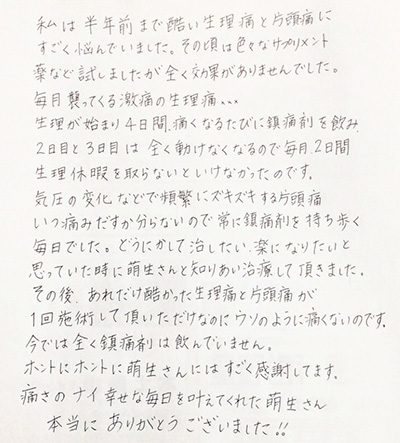 私は半年前まで酷い生理痛と片頭痛に
すごく悩んでいました。その頃は色々なサプリメント
薬など試しましたが全く効果がありませんでした。
毎月襲ってくる激痛の生理痛...
生理が始まり4日間、痛くなるたびに鎮痛剤を飲み、
2日目と3日目は全く動けなくなるので毎月、2日間
生理休暇を取らないといけなかったのです。
気圧の変化などで頻繁にズキズキする片頭痛
いつ痛みだすか分らないので常に鎮痛剤を持ち歩く
毎日でした。どうにかして治したい、楽になりたいと
思っていた時に萌生さんと知りあい治療して頂きました。
その後、あれだけ酷かった生理痛と片頭痛が
1回施術して頂いただけなのにウソのように痛くないのです。
今では全く鎮痛剤は飲んでいません。
ホントにホントに萌生さんにはすごく感謝してます。
痛さのナイ幸せな毎日を叶えてくれた萌生さん
本当にありがとうございました!!